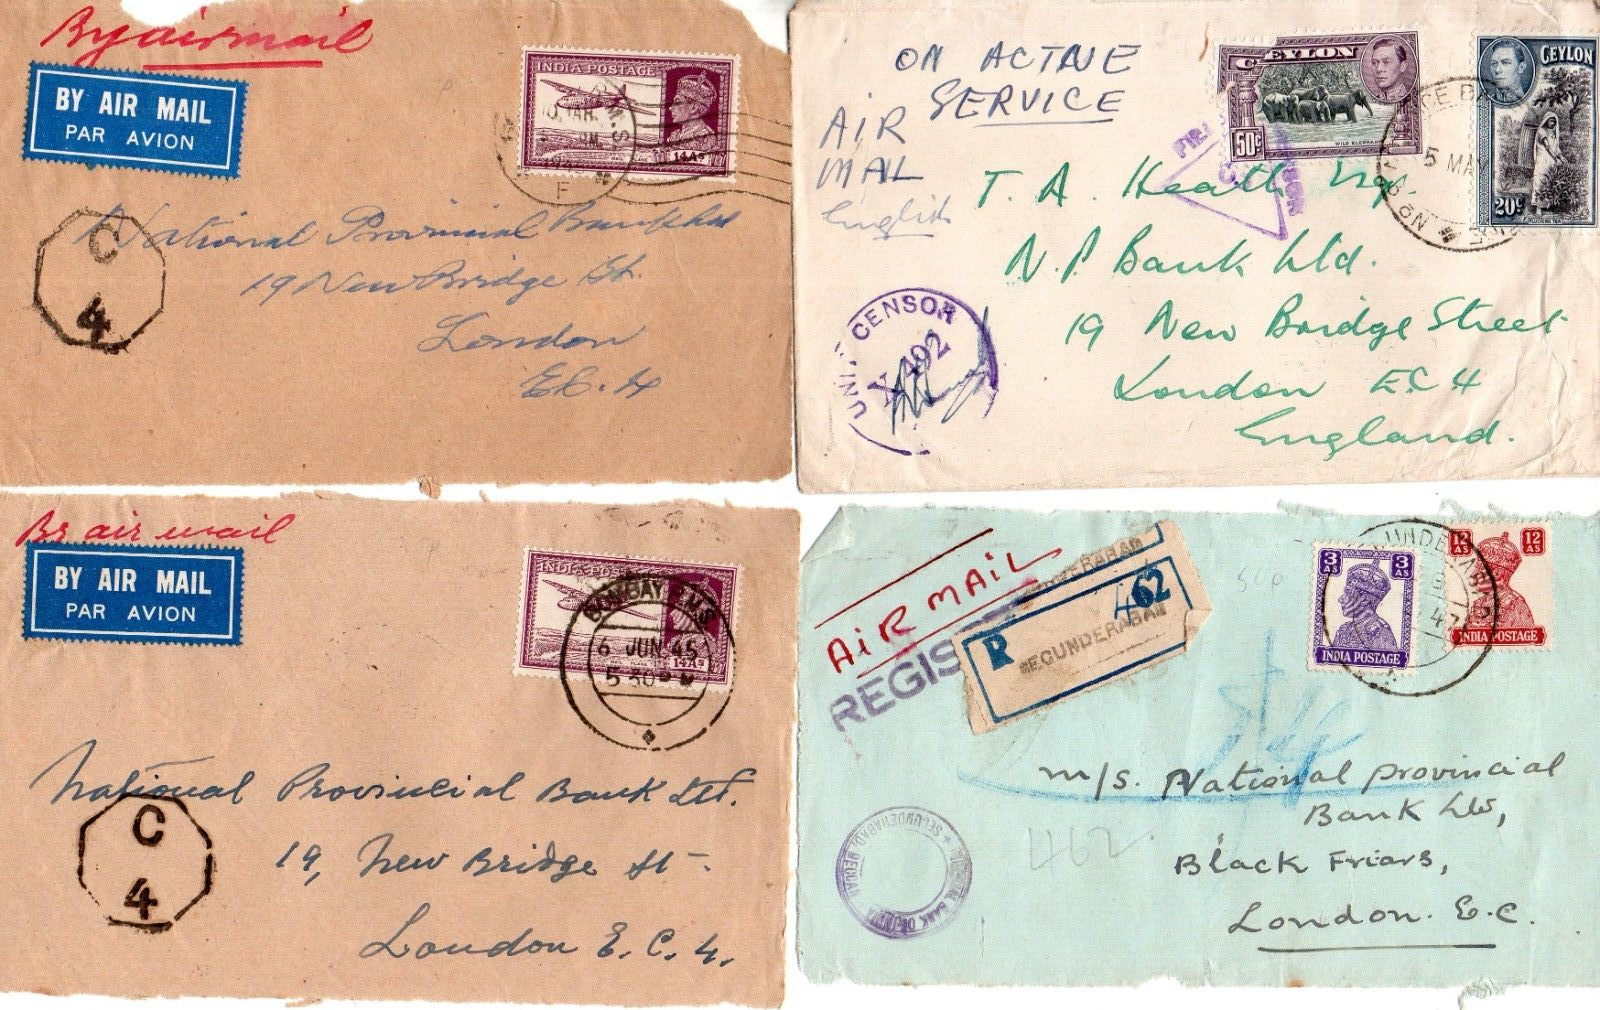 By air mail
BY AIR MAIL
PAR AVION
INDIA POSTAGE
14As
R.M.S.
F
C
4
National Provincial Bank Ltd
19 New Bridge St.
London
E.C. 4
ON ACTIVE
SERVICE
AIR
MAL
English
CEYLON
50c
WILD ELEPHANTS
CEYLON
20c
5 MA
UNIT CENSOR
X 492
T. A. Heath Esq.
N. P Bank Ltd.
19 New Bridge Street
London EC4
England.
By air mail
BY AIR MAIL
PAR AVION
INDIA POSTAGE
14As
BOMBAY R.M.S.
6 JUN 45
5 30 P M
National Provincial Bank Ltd.
C
4
19, New Bridge St.
London E. C. 4.
AIR MAIL
REGIS
R
462
SECUNDERABAD
3 AS
3 AS
INDIA POSTAGE
12 AS
12 AS
INDIA POSTAGE
M/s. National provincial
Bank Ltd,
Black Friars,
London. E.C.
462.
IMPERIAL BANK OF INDIA
SECUNDERABAD, DECCAN